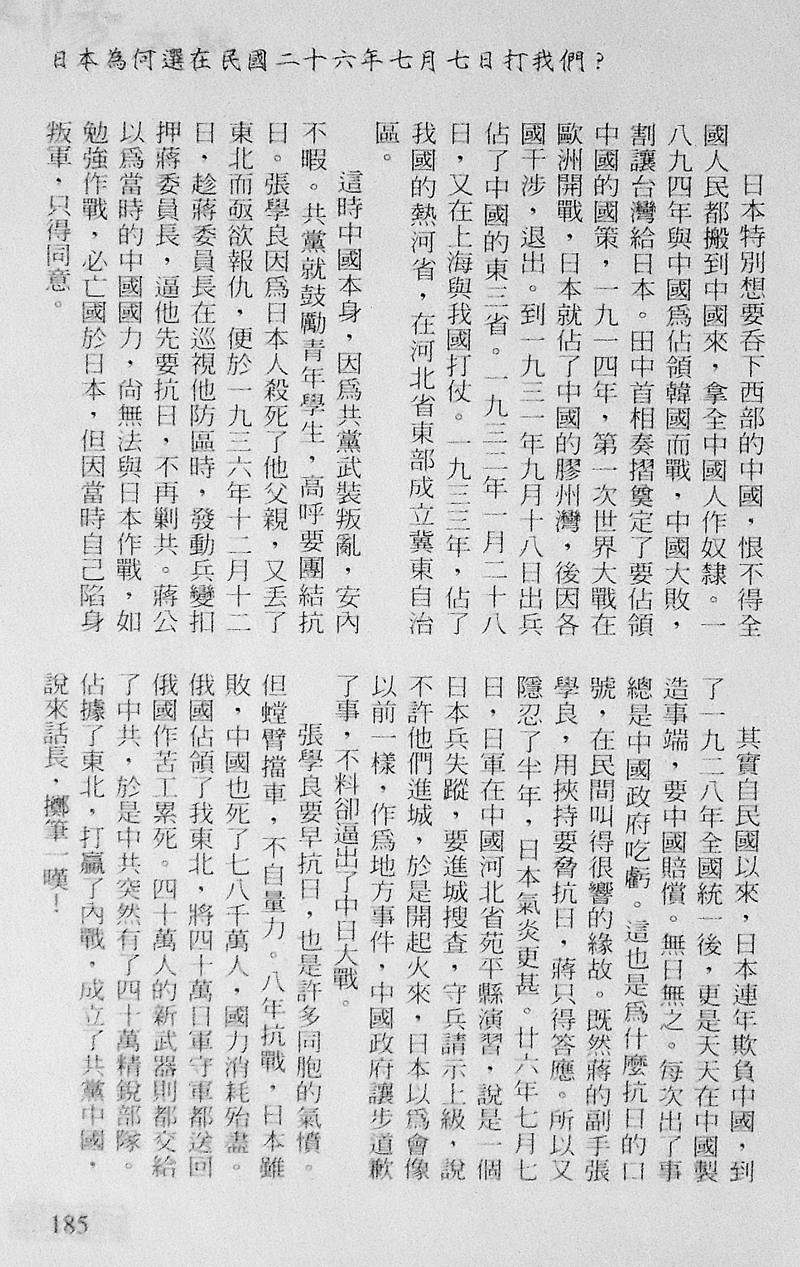 日本為何選在民國二十六年七月七日打我們？
日本特別想要吞下西部的中國，恨不得全
國人民都搬到中國來，拿全中國人作奴隸。一
八九四年與中國為佔領韓國而戰，中國大敗，
割讓台灣給日本。田中首相奏摺奠定了要佔領
中國的國策，一九一四年，第一次世界大戰在
歐洲開戰，日本就佔了中國的膠州灣，後因各
國干涉，退出。到一九三一年九月十八日出兵
佔了中國的東三省。一九三二年一月二十八
日，又在上海與我國打仗。一九三三年，佔了
我國的熱河省，在河北省東部成立冀東自治
區。
這時中國本身，因為共黨武裝叛亂，安內
不暇。共黨就鼓勵青年學生，高呼要團結抗
日。張學良因為日本人殺死了他父親，又丟了
東北而亟欲報仇，便於一九三六年十二月十二
日，趁蔣委員長在巡視他防區時，發動兵變扣
押蔣委員長，逼他先要抗日，不再剿共。蔣公
以為當時的中國國力，尚無法與日本作戰，如
勉強作戰，必亡國於日本，但因當時自己陷身
叛軍，只得同意。
其實自民國以來，日本連年欺負中國，到
了一九二八年全國統一後，更是天天在中國製
造事端，要中國賠償。無日無之。每次出了事
總是中國政府吃虧。這也是為什麼抗日的口
號，在民間叫得很響的緣故。既然蔣的副手張
學良，用挾持要脅抗日，蔣只得答應。所以又
隱忍了半年，日本氣炎更甚。廿六年七月七
日，日軍在中國河北省苑平縣演習，說是一個
日本兵失蹤，要進城搜查，守兵請示上級，說
不許他們進城，於是開起火來，日本以為會像
以前一樣，作為地方事件，中國政府讓步道歉
了事，不料卻逼出了中日大戰。
張學良要早抗日，也是許多同胞的氣憤。
但螳臂擋車，不自量力。八年抗戰，日本雖
敗，中國也死了七八千萬人，國力消耗殆盡。
俄國佔領了我東北，將四十萬日軍守軍都送回
俄國作苦工累死。四十萬人的新武器則都交給
了中共，於是中共突然有了四十萬精銳部隊。
佔據了東北，打贏了內戰，成立了共黨中國，
說來話長，擲筆一嘆！
185